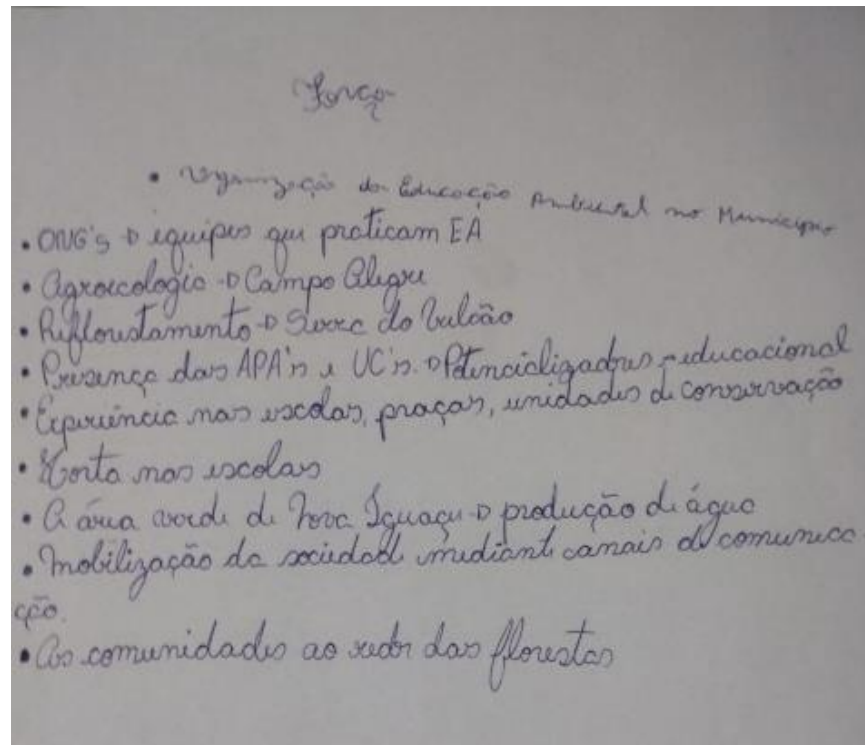 Força
• Organização da Educação Ambiental no Município
• ONG's → equipes que praticam EA
• Agroecologia → Campo Alegre
• Reflorestamento → Serra do Vulcão
• Presença das APA's e UC's → Potencializadores - educacional
• Experiência nas escolas, praças, unidades de conservação
• Horta nas escolas
• A área verde de Nova Iguaçu → produção de água
• Mobilização da sociedade mediante canais de comunica
ção.
• As comunidades ao redor das florestas